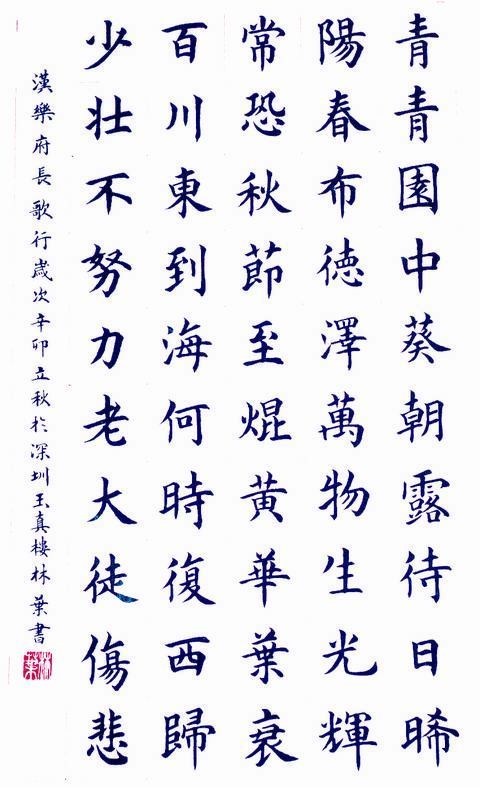 青青園中葵朝露待日晞
陽春布德澤萬物生光輝
常恐秋節至焜黃華葉衰
百川東到海何時復西歸
少壯不努力老大徒傷悲
漢樂府長歌行歲次辛卯立秋於深圳玉真樓林葉書
林葉